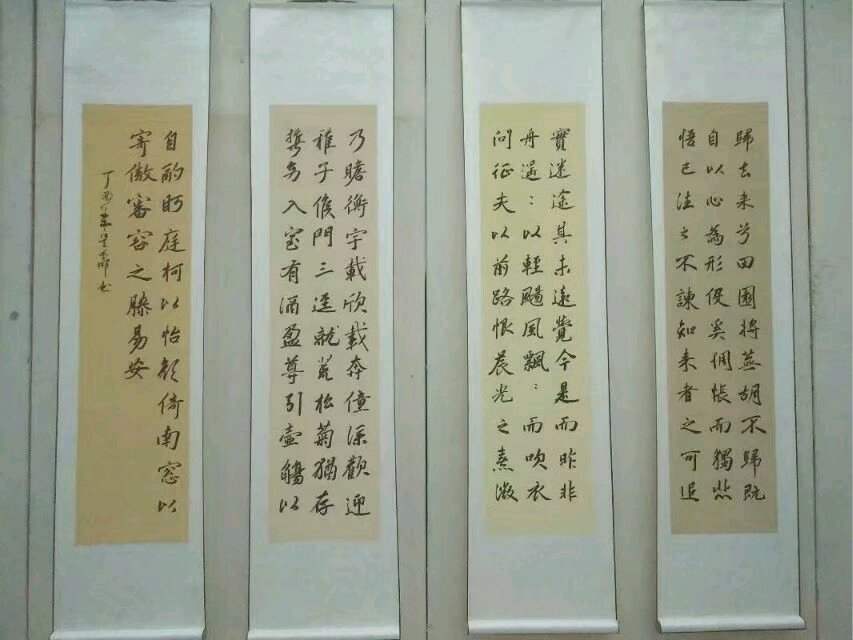 歸去来兮田園將蕪胡不歸既
自以心為形役奚惆悵而獨悲
悟已往之不諫知来者之可追
實迷途其未遠覺今是而昨非
舟遥〻以輕颺風飄〻而吹衣
問征夫以前路恨晨光之熹微
乃瞻衡宇載欣載奔僮僕歡迎
稚子候門三逕就荒松菊猶存
携幼入室有酒盈尊引壺觴以
自酌眄庭柯以怡顏倚南窓以
寄傲審容之膝易安
丁酉年书